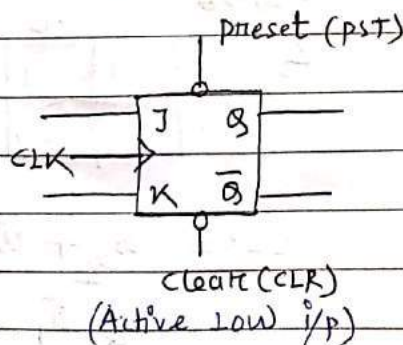 preset (PST)
J Q
CLK
K Q̅
Clear (CLR)
(Active Low i/p)